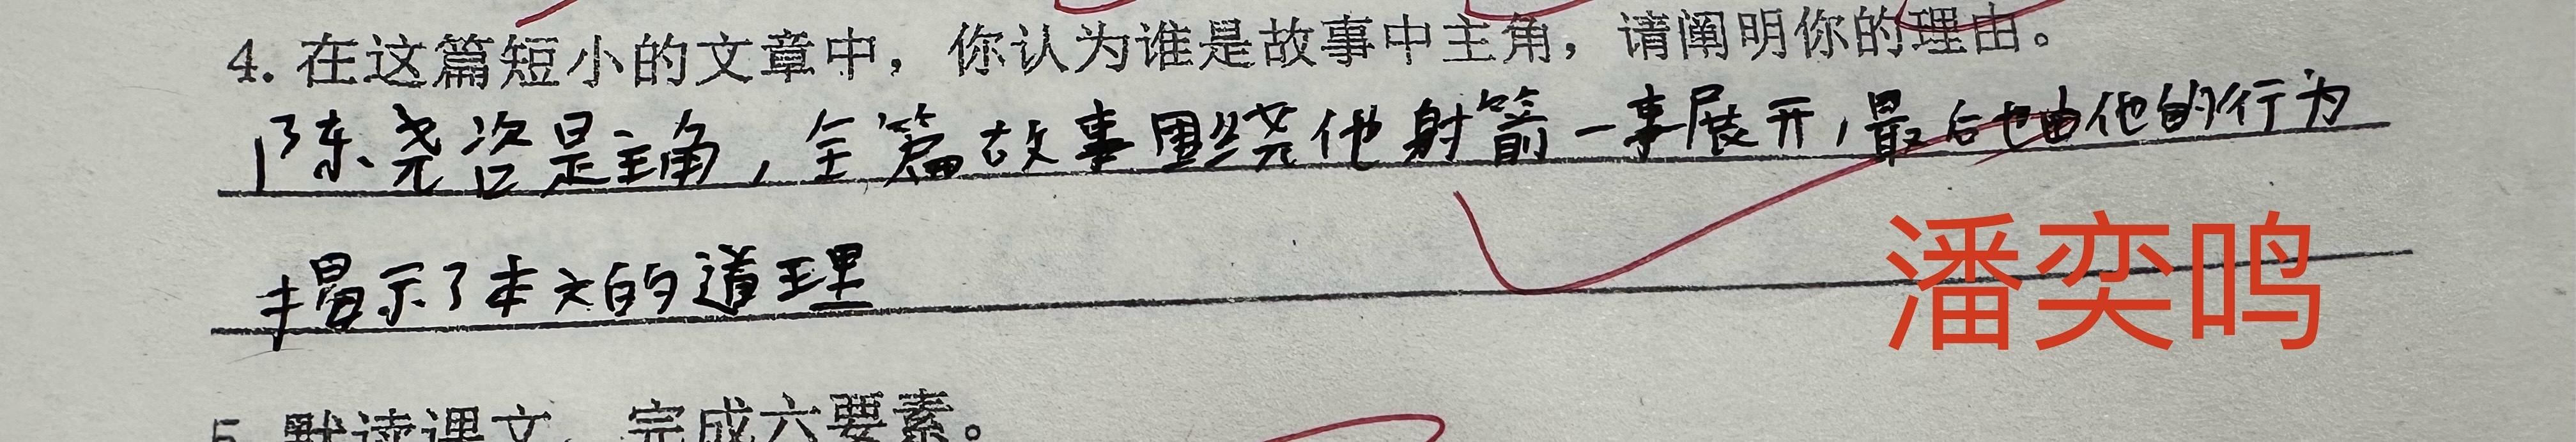 4. 在这篇短小的文章中，你认为谁是故事中主角，请阐明你的理由。
陈尧咨是主角，全篇故事围绕他射箭一事展开，最后也由他的行为
揭示了本文的道理
潘奕鸣
5. 默读课文，完成六要素。